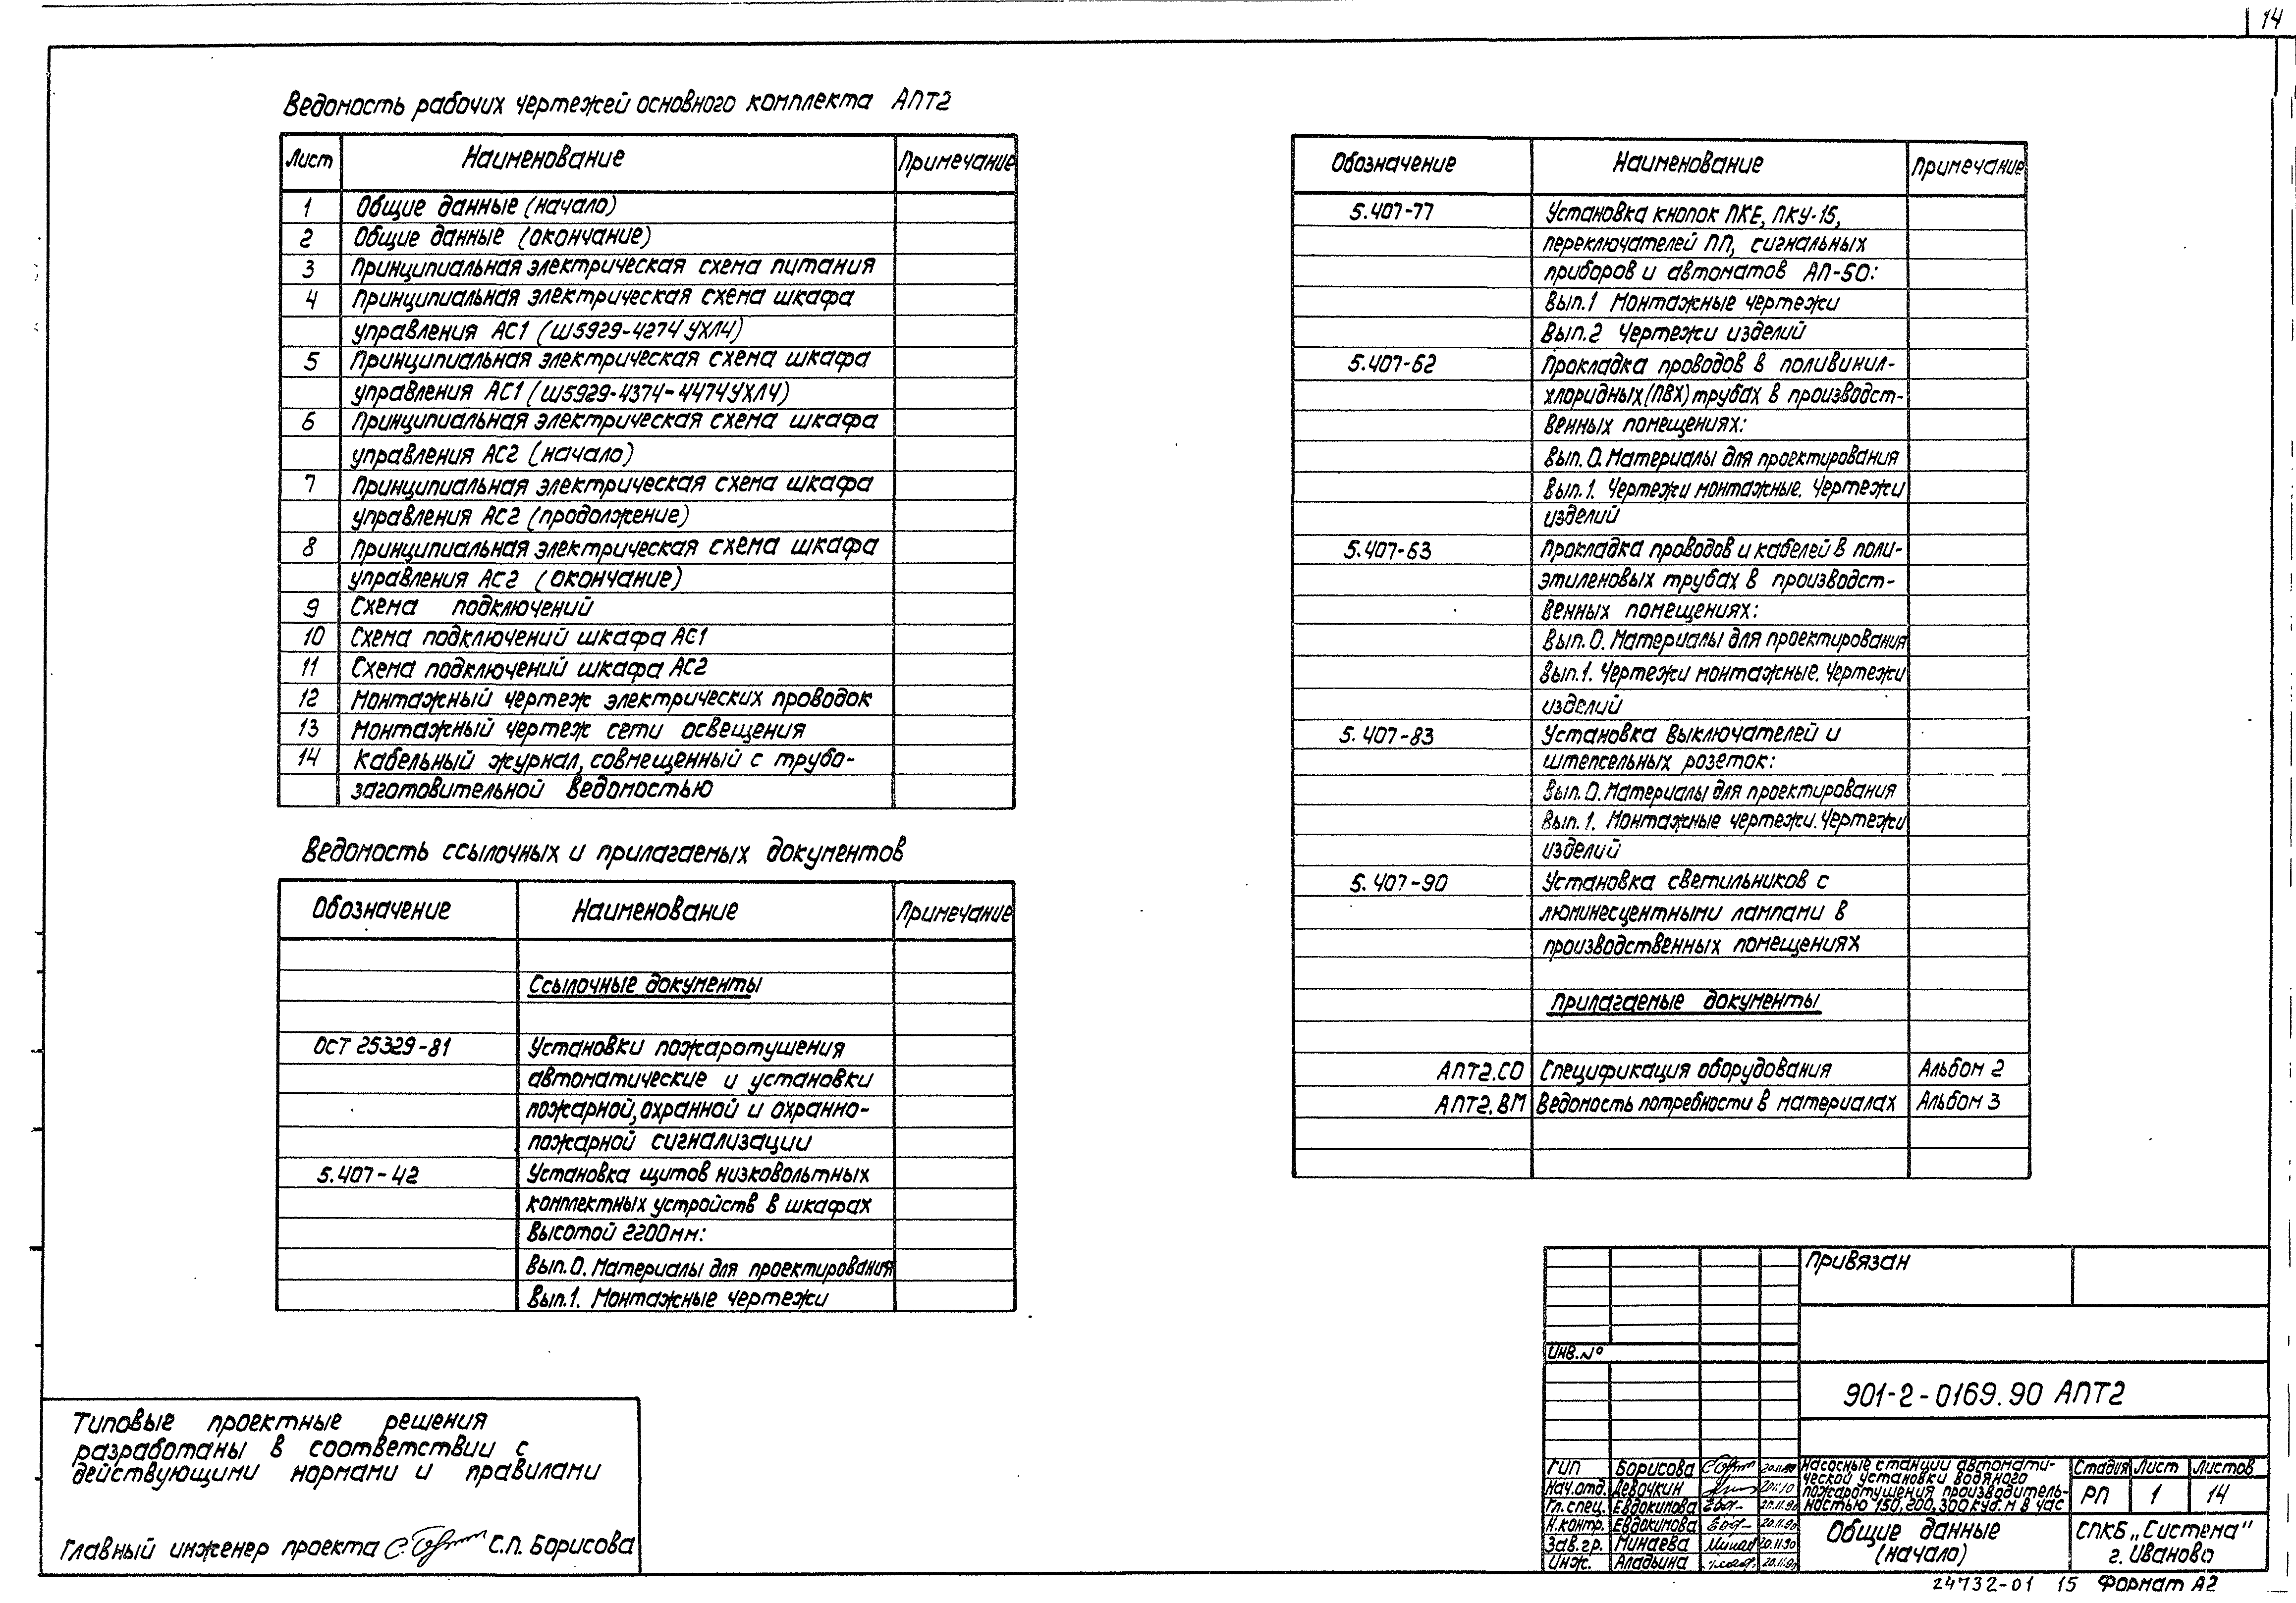 14
Ведомость рабочих чертежей основного комплекта АПТ2
Лист Наименование Примечание
1 Общие данные (начало)
2 Общие данные (окончание)
3 Принципиальная электрическая схема питания
4 Принципиальная электрическая схема шкафа
управления АС1 (Ш5929-4274 УХЛ4)
5 Принципиальная электрическая схема шкафа
управления АС1 (Ш5929-4374-4474УХЛ4)
6 Принципиальная электрическая схема шкафа
управления АС2 (начало)
7 Принципиальная электрическая схема шкафа
управления АС2 (продолжение)
8 Принципиальная электрическая схема шкафа
управления АС2 (окончание)
9 Схема подключений
10 Схема подключений шкафа АС1
11 Схема подключений шкафа АС2
12 Монтажный чертеж электрических проводок
13 Монтажный чертеж сети освещения
14 Кабельный журнал, совмещенный с трубо-
заготовительной ведомостью
Ведомость ссылочных и прилагаемых документов
Обозначение Наименование Примечание
Ссылочные документы
ОСТ 25329-81 Установки пожаротушения
автоматические и установки
пожарной, охранной и охранно-
пожарной сигнализации
5.407-42 Установка щитов низковольтных
комплектных устройств в шкафах
высотой 2200мм:
Вып.0. Материалы для проектирования
Вып.1. Монтажные чертежи
Обозначение Наименование Примечание
5.407-77 Установка кнопок ПКЕ, ПКУ-15,
переключателей ПП, сигнальных
приборов и автоматов АП-50:
Вып.1 Монтажные чертежи
Вып.2 Чертежи изделий
5.407-62 Прокладка проводов в поливинил-
хлоридных (ПВХ) трубах в производст-
венных помещениях:
Вып.0. Материалы для проектирования
Вып.1. Чертежи монтажные. Чертежи
изделий
5.407-63 Прокладка проводов и кабелей в поли-
этиленовых трубах в производст-
венных помещениях:
Вып.0. Материалы для проектирования
Вып.1. Чертежи монтажные. Чертежи
изделий
5.407-83 Установка выключателей и
штепсельных розеток:
Вып.0. Материалы для проектирования
Вып.1. Монтажные чертежи. Чертежи
изделий
5.407-90 Установка светильников с
люминесцентными лампами в
производственных помещениях
Прилагаемые документы
АПТ2.СО Спецификация оборудования Альбом 2
АПТ2.ВМ Ведомость потребности в материалах Альбом 3
Типовые проектные решения
разработаны в соответствии с
действующими нормами и правилами
Главный инженер проекта С.П. Борисова
Привязан
Инв.№
901-2-0169.90 АПТ2
ГИП Борисова 20.11.90
Нач.отд. Девочкин
Гл.спец. Евдокимова 20.11.90
Н.контр. Евдокимова 20.11.90
Зав.гр. Минаева 20.11.90
Инж. Аладьина 20.11.90
Насосные станции автомати-
ческой установки водяного
пожаротушения производитель-
ностью 150, 200, 300 куб. м в час
Стадия Лист Листов
РП 1 14
Общие данные
(начало)
СПКБ „Система"
г. Иваново
24732-01 15 Формат А2